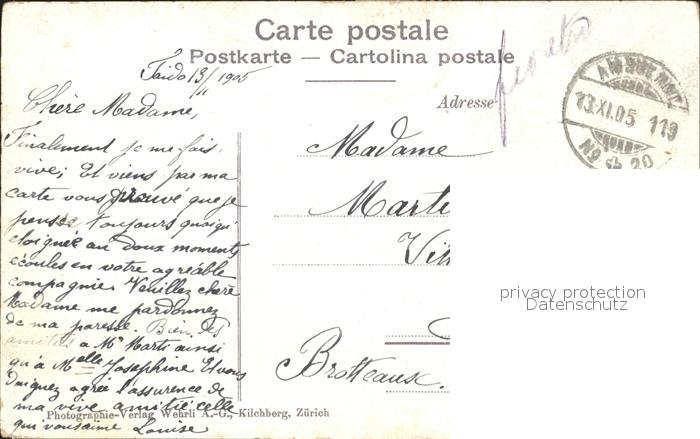 Carte postale
Postkarte — Cartolina postale
Adresse
Faido 13/11 1905
Chère Madame,
Finalement je me fais
vive; Et viens par ma
carte vous prouvé que je
pense toujours quoiqu'
éloignée au doux moments
écoulés en votre agréable
compagnie. Veuillez chère
Madame me pardonnez
de ma paresse. Bien des
amitiés a Mr Marti ainsi
qu'à Melle Josephine Et vous
Daignez agréé l'assurence de
ma vive amitié celle
qui vous aime Louise
Madame
Marti
Brotteaux.
13.XI.05
119
No
20
privacy protection
Datenschutz
Photographie-Verlag Wehrli A.-G., Kilchberg, Zürich